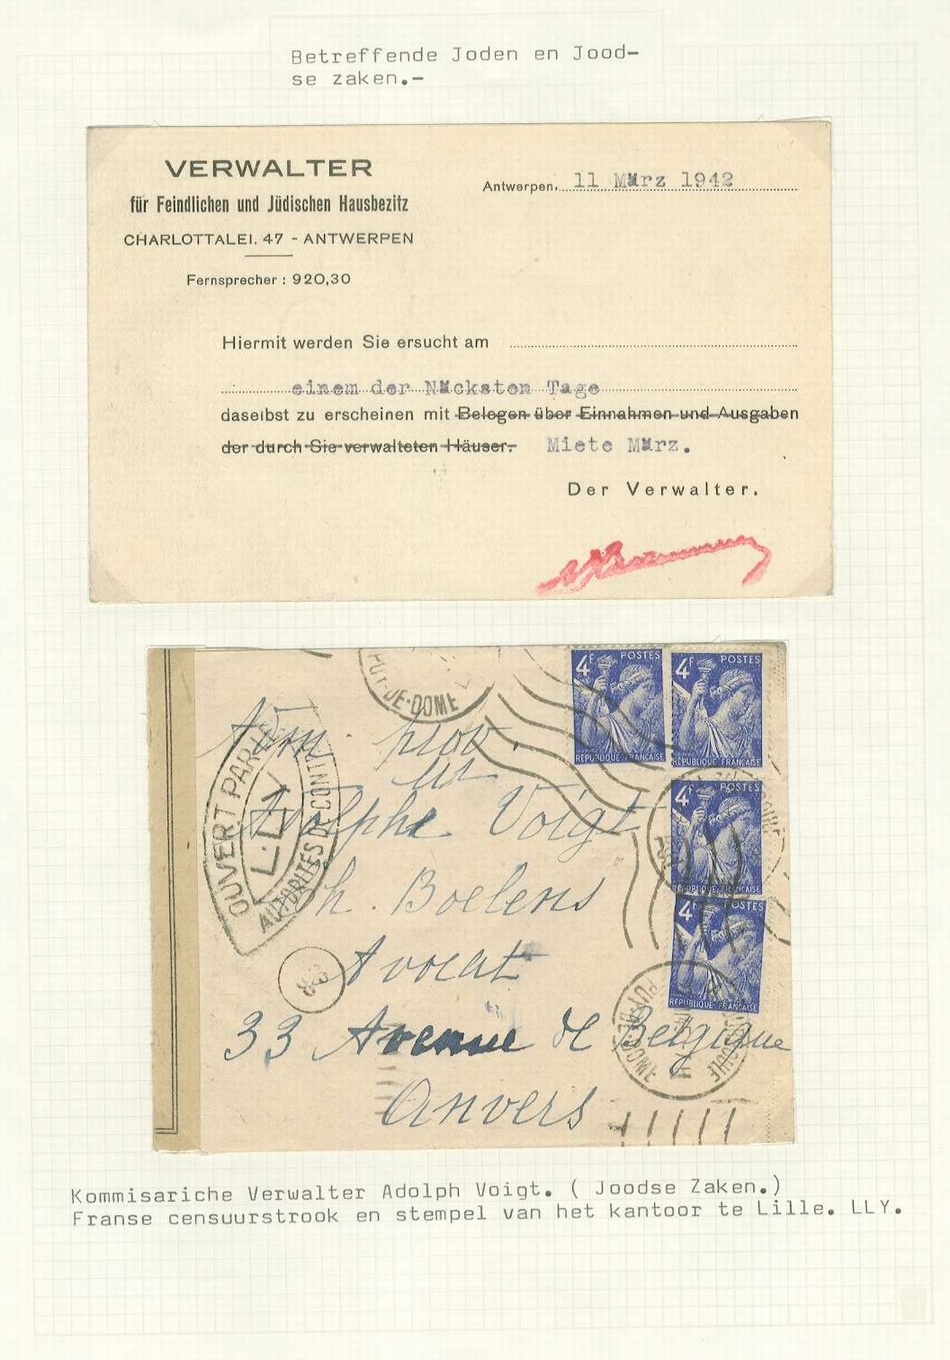 Betreffende Joden en Jood-
se zaken.-
VERWALTER
für Feindlichen und Jüdischen Hausbezitz
CHARLOTTALEI. 47 - ANTWERPEN
Fernsprecher : 920,30
Antwerpen, 11 März 1942
Hiermit werden Sie ersucht am
einem der Näcksten Tage
daselbst zu erscheinen mit Belegen über Einnahmen und Ausgaben
der durch Sie verwalteten Häuser. Miete März.
Der Verwalter.
PUY-DE-DOME
4F POSTES
RÉPUBLIQUE FRANÇAISE
4F POSTES
RÉPUBLIQUE FRANÇAISE
4F POSTES
RÉPUBLIQUE FRANÇAISE
4F POSTES
RÉPUBLIQUE FRANÇAISE
OUVERT PAR LES
AUTORITÉS DE CONTR
Adolphe Voigt
Boelens
Avocat
33 Avenue de Belgique
Anvers
PUY-DE-DOME
Kommisariche Verwalter Adolph Voigt. ( Joodse Zaken.)
Franse censuurstrook en stempel van het kantoor te Lille. LLY.